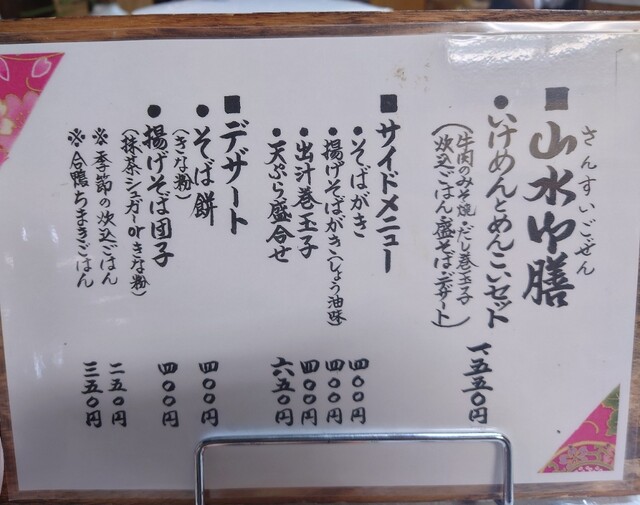 さんすいごぜん
■山水御膳
●いけめんとめんこいセット 一五五〇円
(牛肉のみそ焼・だし巻玉子
炊込ごはん・盛そば・デザート)
■サイドメニュー
●そばがき 四〇〇円
●揚げそばがき(しょう油味) 四〇〇円
●出汁巻玉子 四〇〇円
●天ぷら盛合せ 六五〇円
■デザート
●そば餅 四〇〇円
(きな粉)
●揚げそば団子 四〇〇円
(抹茶シュガーorきな粉)
※季節の炊込ごはん 二五〇円
※合鴨ちまきごはん 三五〇円